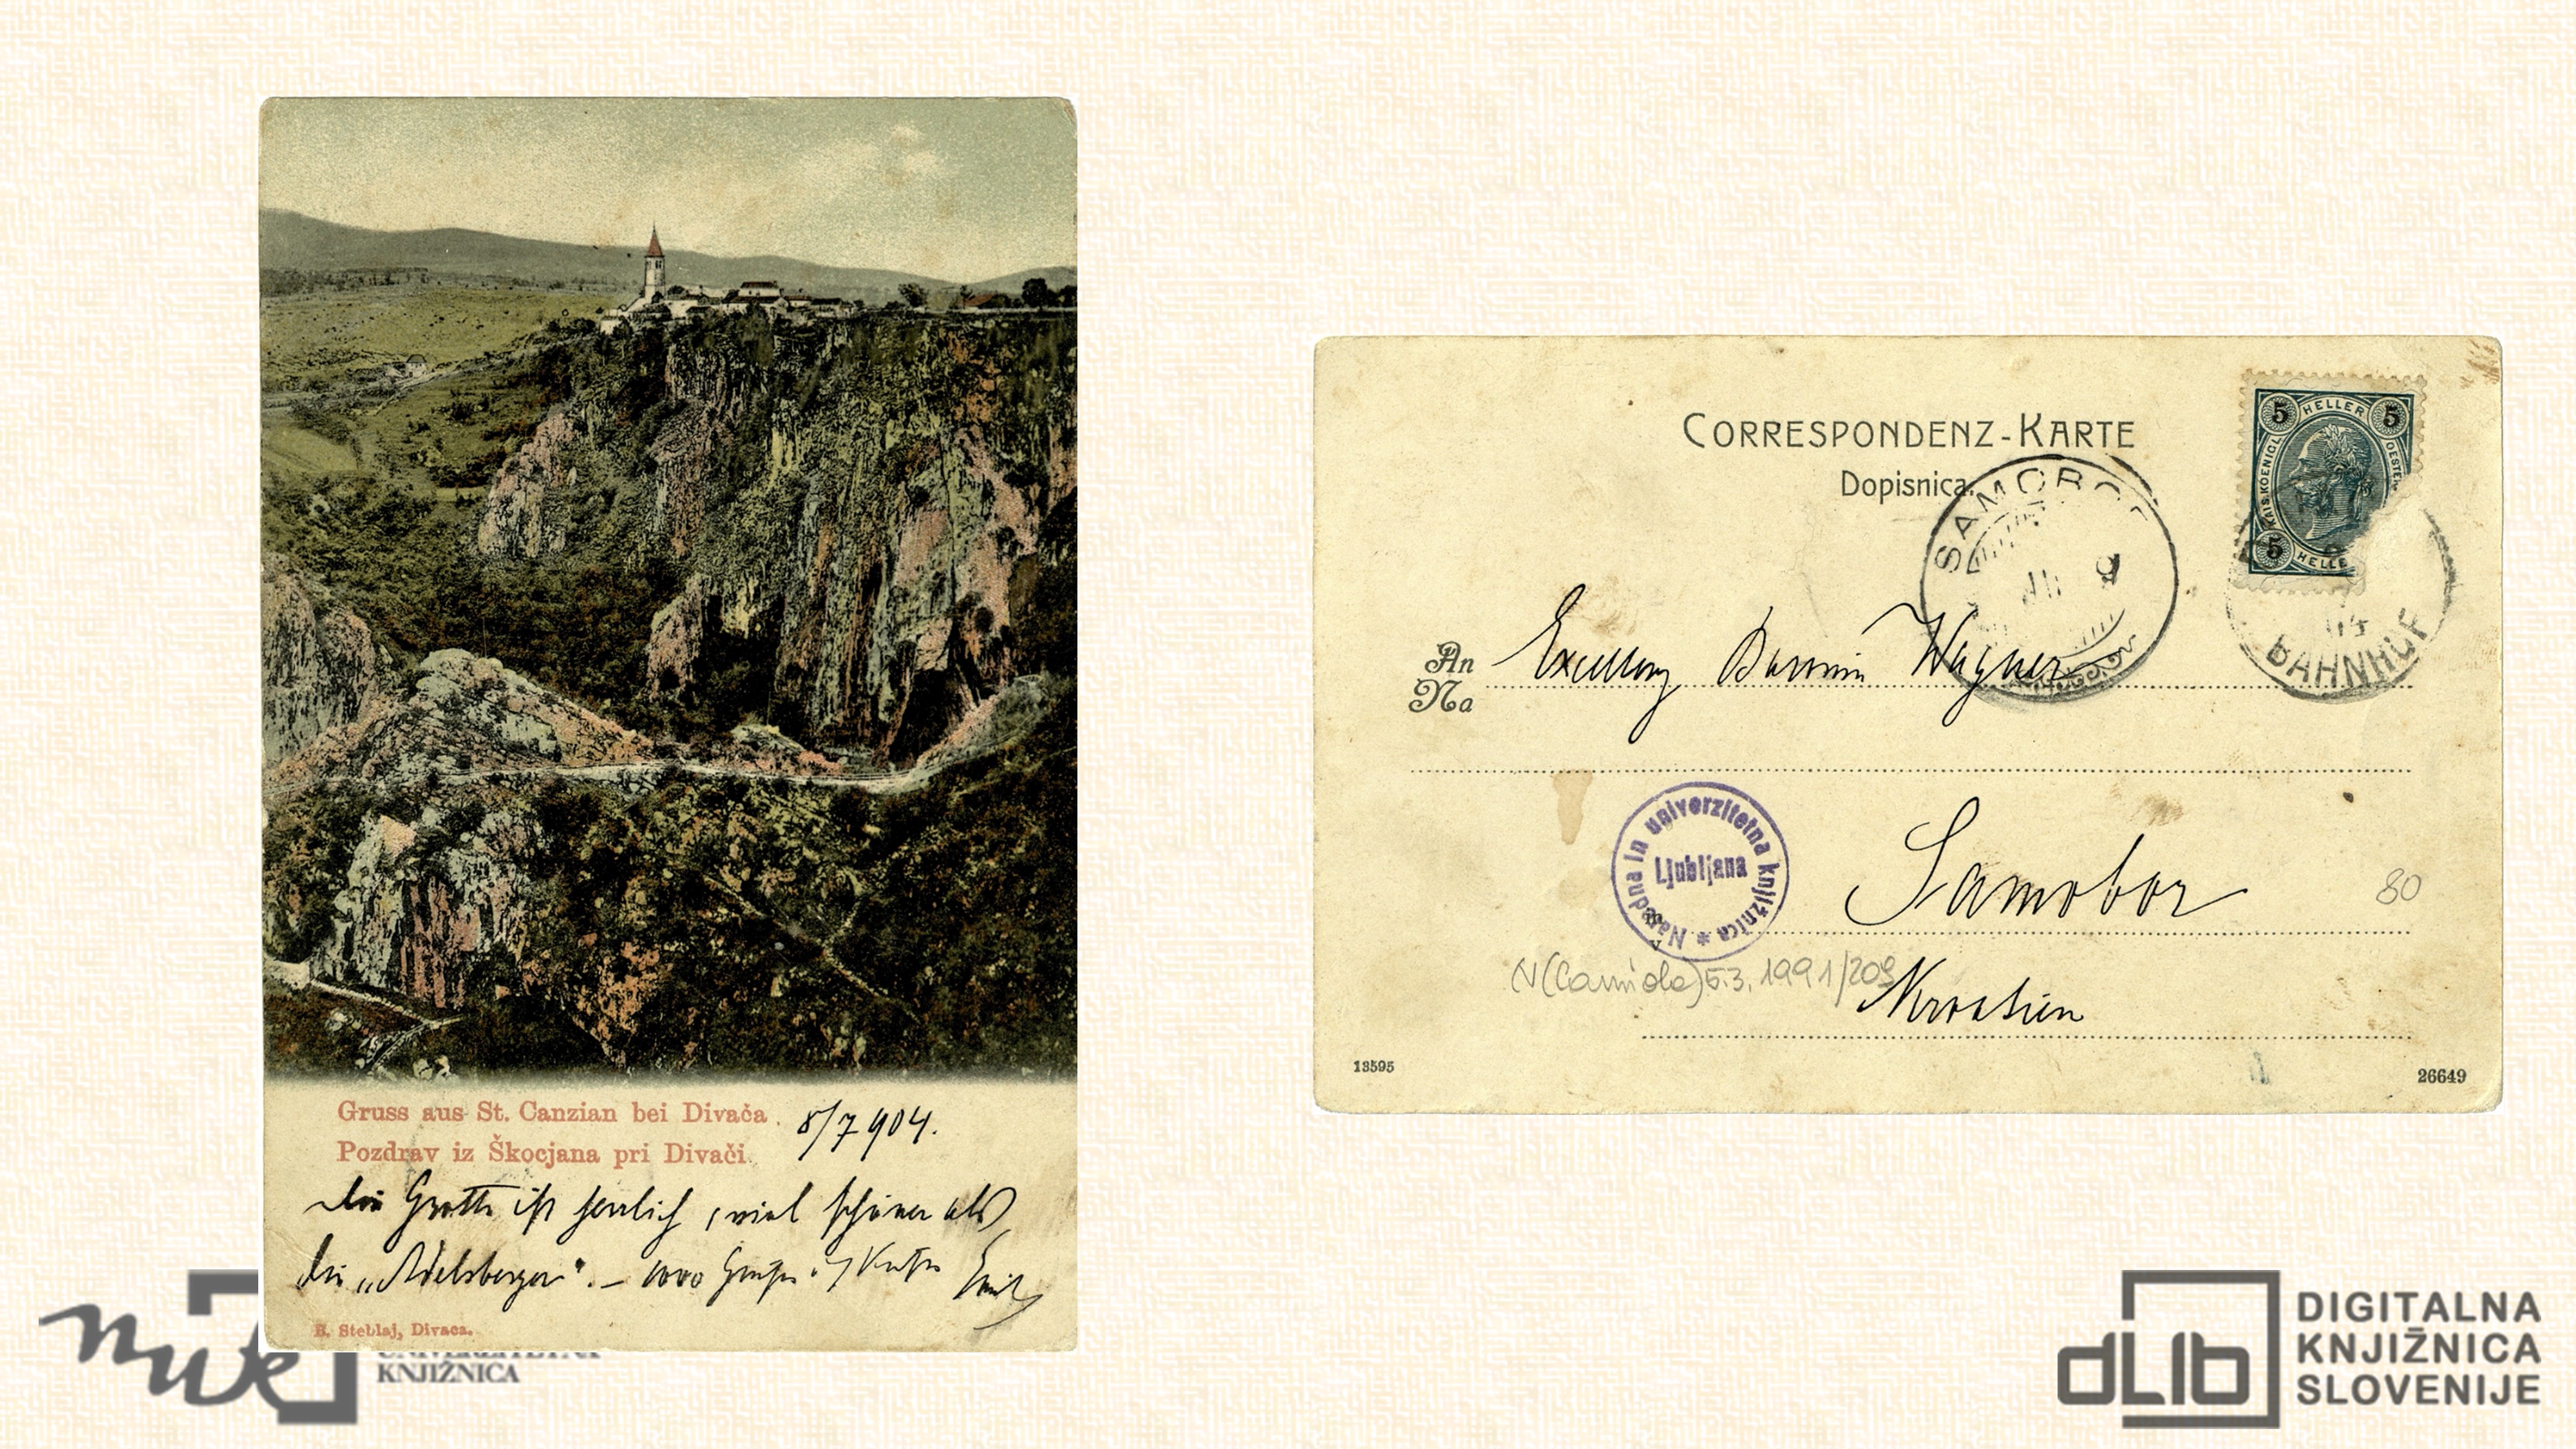 Gruss aus St. Canzian bei Divača
8/7 904.
Pozdrav iz Škocjana pri Divači.
Die Grotte ist herrlich, viel schöner als
die „Adelsberger“. – 1000 Emil
B. Steblaj, Divaca.
CORRESPONDENZ-KARTE
Dopisnica.
SAMOBOR
5 HELLER 5
KAIS. KOENIGL.
5 HELLE
BAHNHOF
An
Na
Excellenz Baronin Wagner
Narodna in univerzitetna knjižnica *
Ljubljana
Samobor
80
N(Carniola) 5.3.1991/209
Kroatien
13595
26649
nuk
KNJIŽNICA
dLib
DIGITALNA
KNJIŽNICA
SLOVENIJE